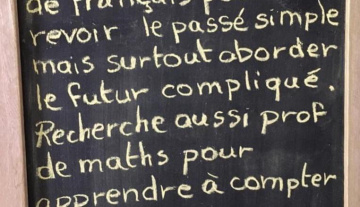 de français
revoir le passé simple
mais surtout aborder
le futur compliqué.
Recherche aussi prof
de maths pour
apprendre à compter